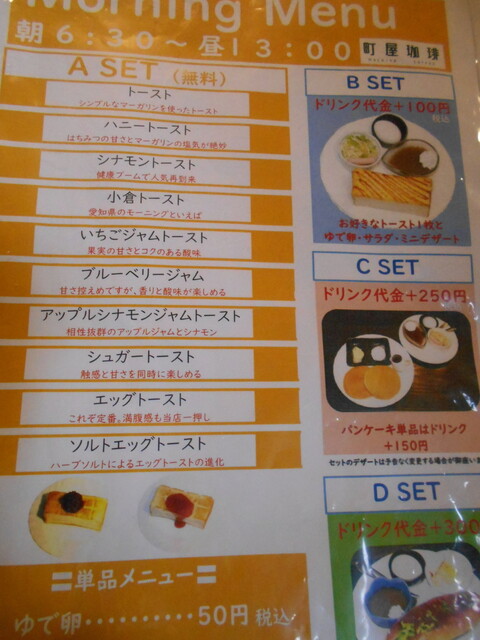 Morning Menu
朝6:30～昼13:00
町屋珈琲
A SET (無料)
トースト
シンプルなマーガリンを使ったトースト
ハニートースト
はちみつの甘さとマーガリンの塩気が絶妙
シナモントースト
健康ブームで人気再到来
小倉トースト
愛知県のモーニングといえば
いちごジャムトースト
果実の甘さとコクのある酸味
ブルーベリージャム
甘さ控えめですが、香りと酸味が楽しめる
アップルシナモンジャムトースト
相性抜群のアップルジャムとシナモン
シュガートースト
触感と甘さを同時に楽しめる
エッグトースト
これぞ定番。満腹感も当店一押し
ソルトエッグトースト
ハーブソルトによるエッグトーストの進化
〓単品メニュー〓
ゆで卵··········50円 税込
B SET
ドリンク代金+100円
税込
お好きなトースト1枚と
ゆで卵・サラダ・ミニデザート
C SET
ドリンク代金+250円
パンケーキ単品はドリンク
+150円
セットのデザートは予告なく変更する場合が御座いま
D SET
ドリンク代金+300